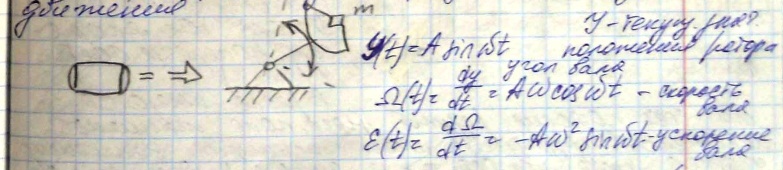 движения
m
У - текущ. знач.
y(t) = A sin ωt положения ротора
угол вала
Ω(t) = dy/dt = Aω cos ωt - скорость вала
ε(t) = dΩ/dt = -Aω² sin ωt - ускорение вала